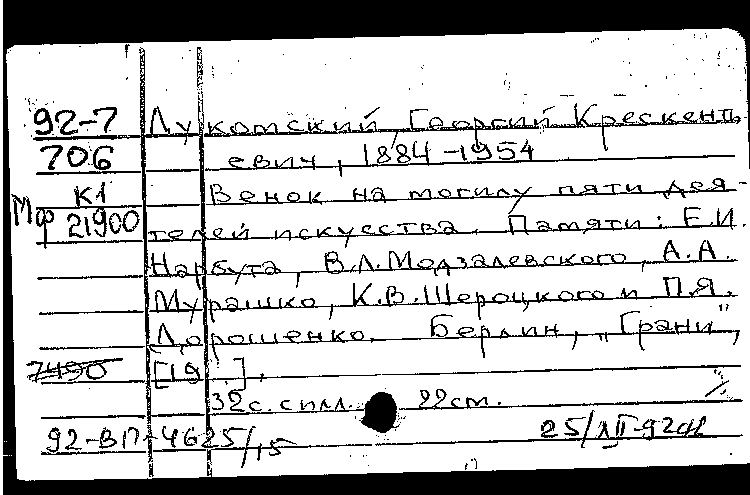 92-7 Лукомский, Георгий Крескенть
706 евич, 1884-1954
К1 Венок на могилу пяти дея-
Мф 21900 телей искусства. Памяти: Е.И.
Нарбута, В.Л.Модзалевского, А.А.
Мурашко, К.В.Шероцкого и П.Я.
Дорошенко. Берлин, "Грани",
7490 [19 ].
32 с. с илл. 22 см.
92-ВП-4625/15 25/XII-92